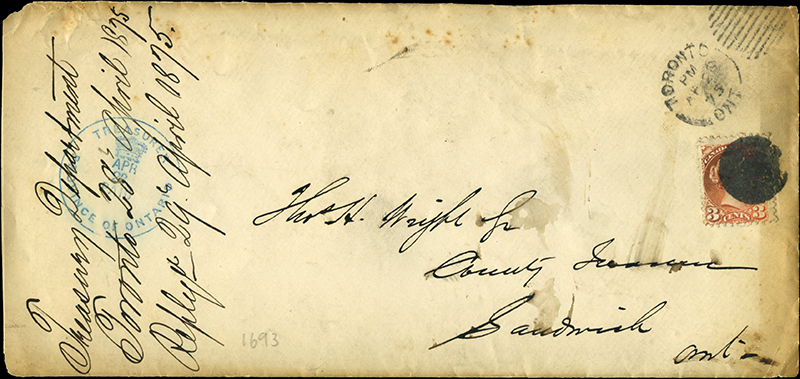 Treasury Department
Toronto April 1875
Reply 29th April 1875.
TREASURER
APR
PROVINCE OF ONTARIO
TORONTO
PM
ONT
3 CENTS 3
Thos H. Wright
County
Sandwich
Ont
1693